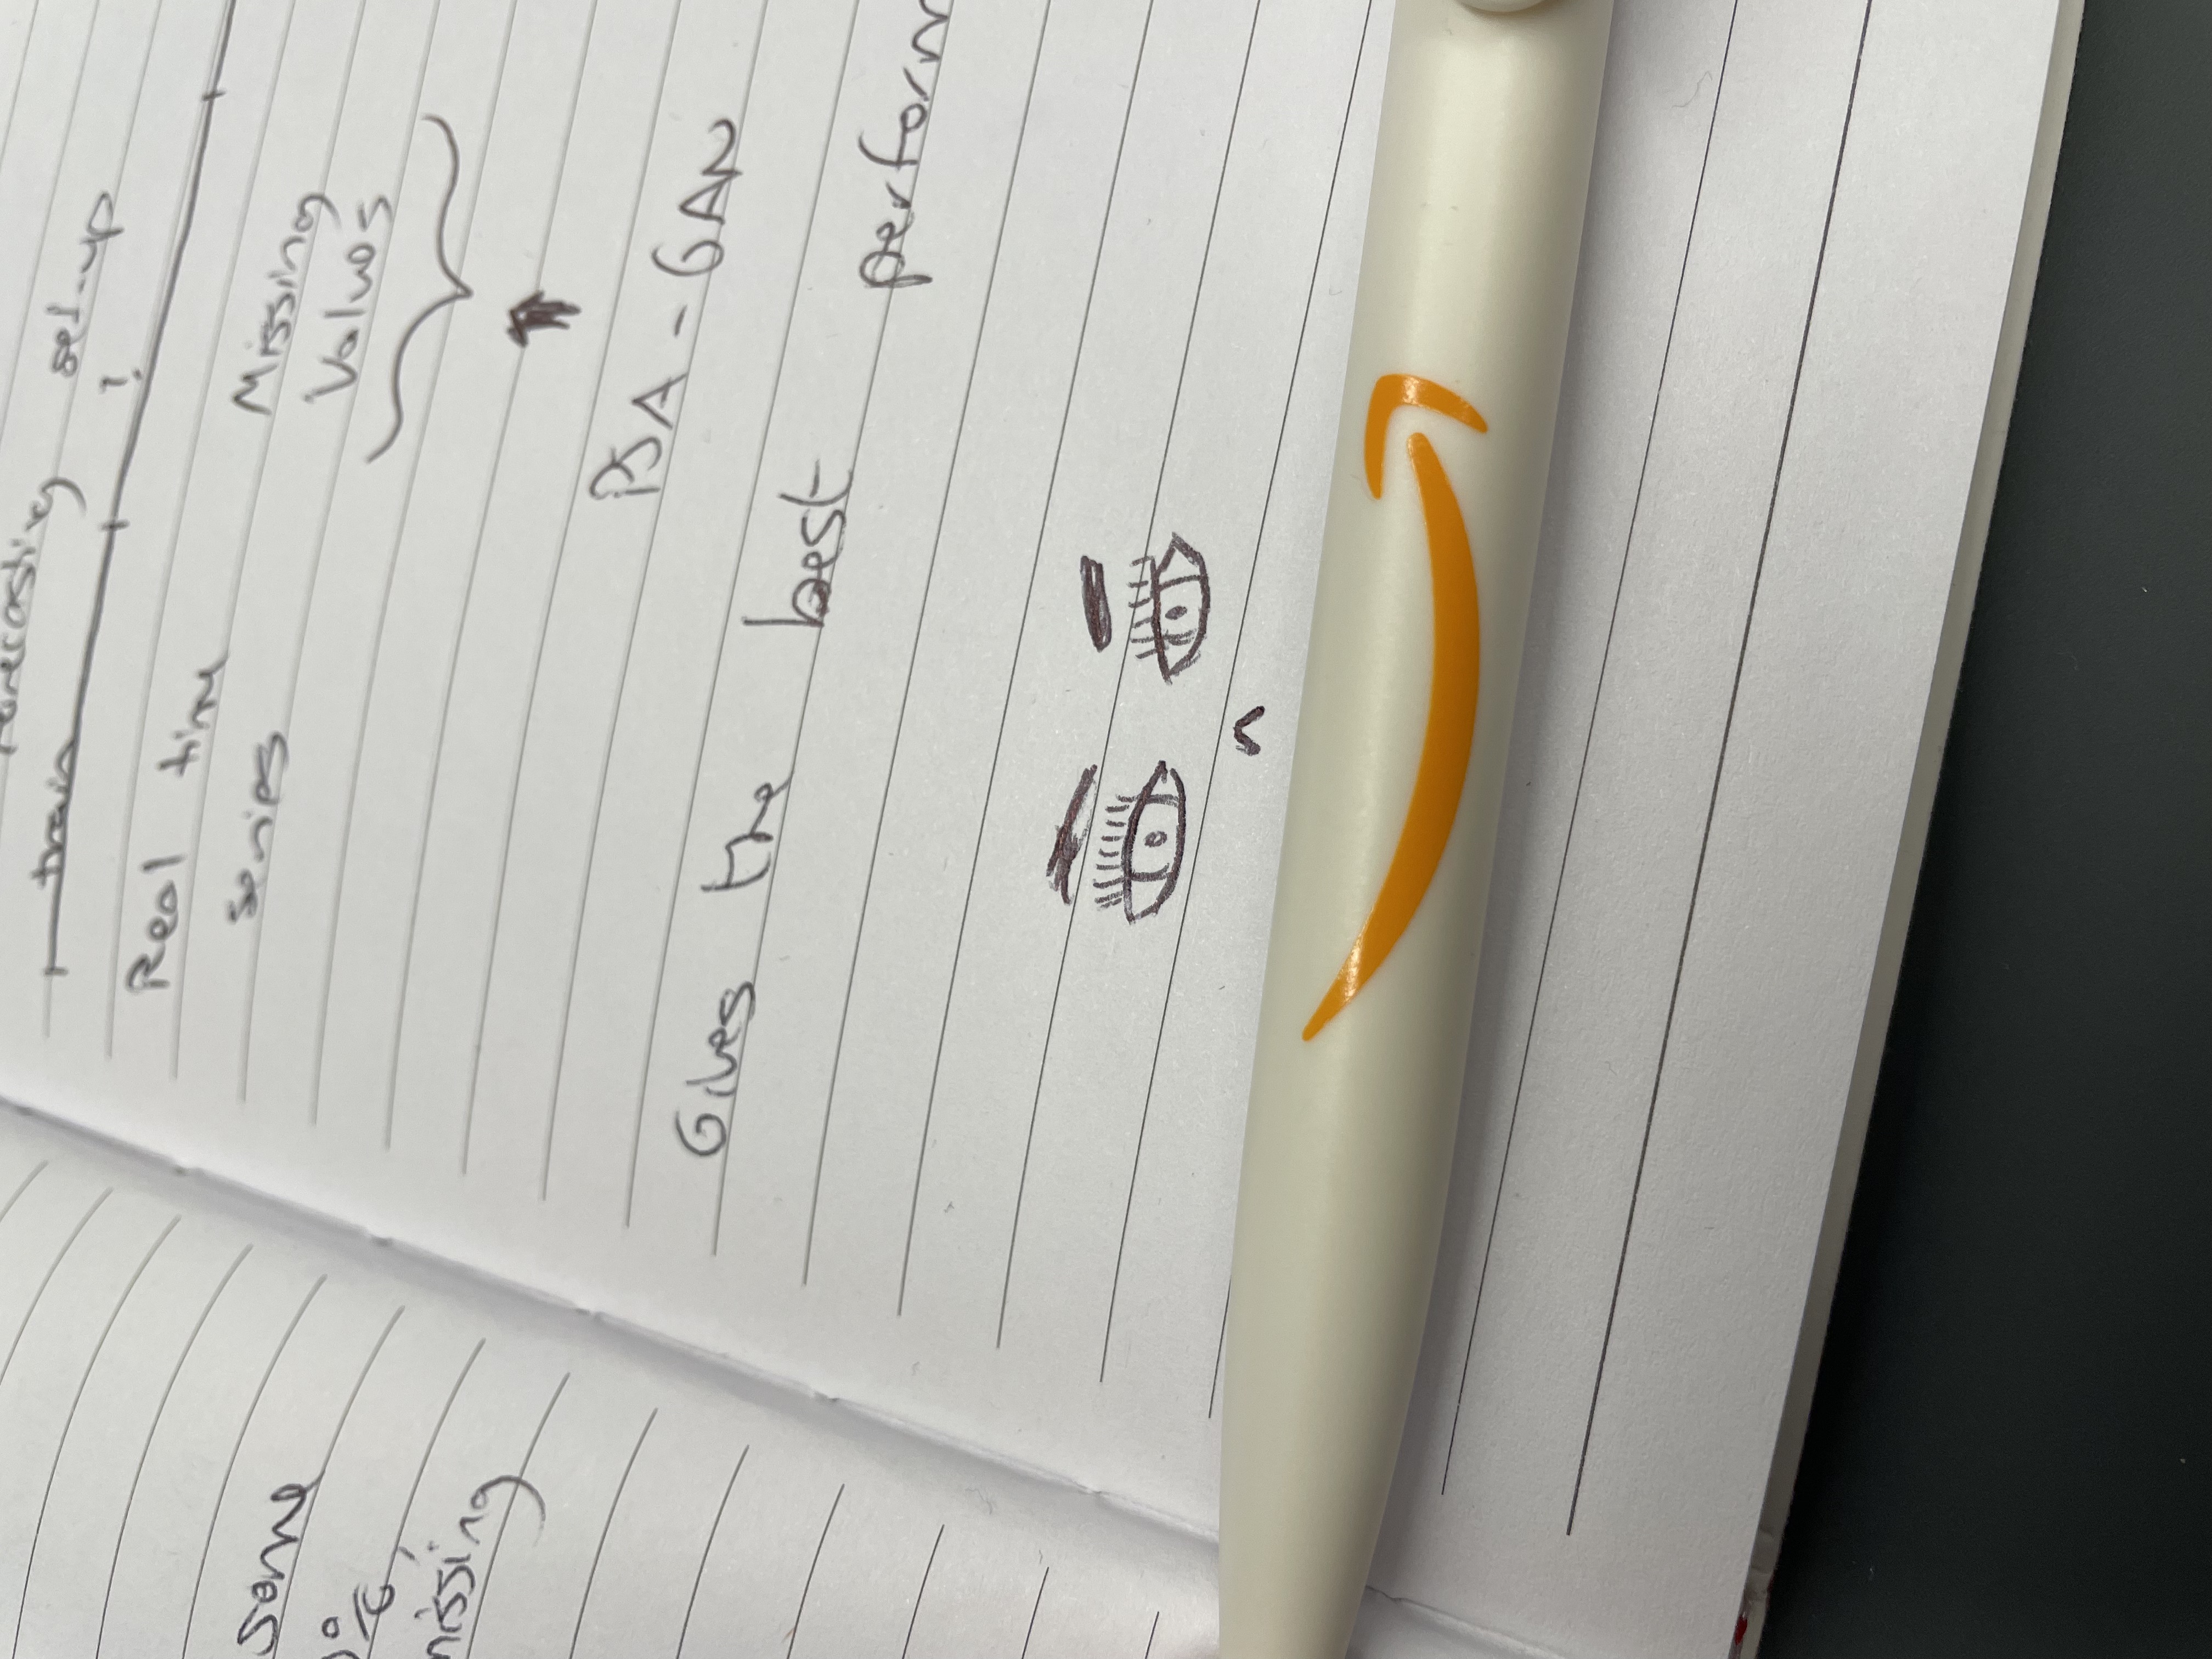 some
%,
missing
Forecasting set-up
train ?
Real time
series
Missing
Values
PSA - GAN
Gives the best perform